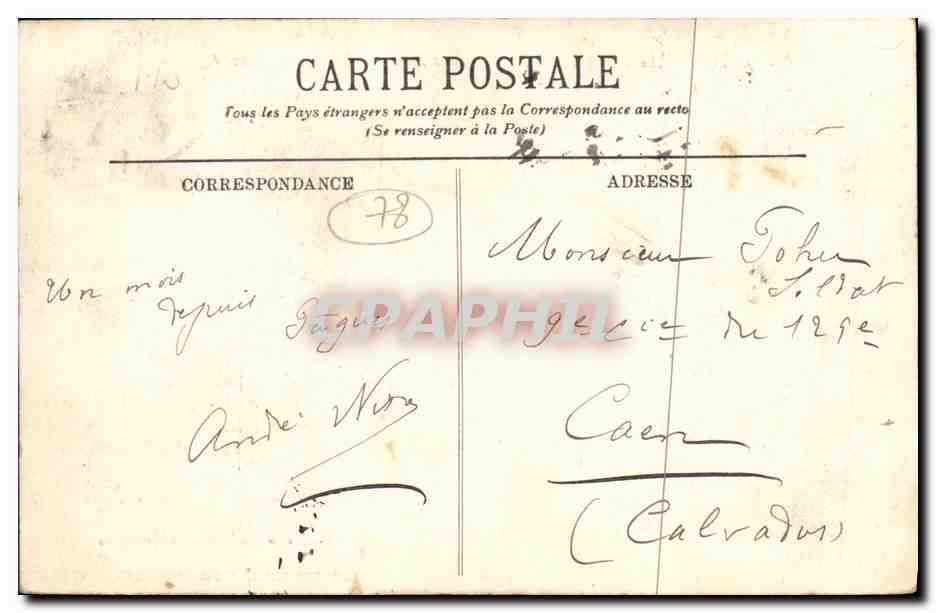 CARTE POSTALE
Tous les Pays étrangers n'acceptent pas la Correspondance au recto
(Se renseigner à la Poste)
CORRESPONDANCE
ADRESSE
78
Un mois
depuis Pâques
André
Monsieur
Soldat
9e Cie du 129e
Caen
(Calvados)